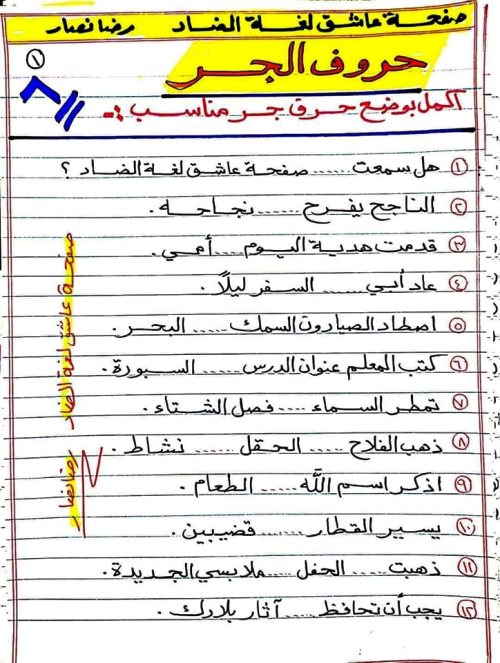 صفحة عاشق لغة الضاد رضا نصار
١
حروف الجر
اكمل بوضع حرف جر مناسب :-
١ هل سمعت ...... صفحة عاشق لغة الضاد ؟
٢ الناجح يفرح ...... نجاحه .
٣ قدمت هدية اليوم .... أمي .
٤ عاد أبي ...... السفر ليلًا .
٥ اصطاد الصيادون السمك ..... البحر .
٦ كتب المعلم عنوان الدرس ..... السبورة .
٧ تمطر السماء .... فصل الشتاء .
٨ ذهب الفلاح ..... الحقل ..... نشاط .
٩ اذكر اسم الله ..... الطعام .
١٠ يسير القطار ...... قضيبين .
١١ ذهبت ..... الحفل .... ملابسي الجديدة .
١٢ يجب أن تحافظ ..... آثار بلادك .
صفحة عاشق لغة الضاد
رضا نصار